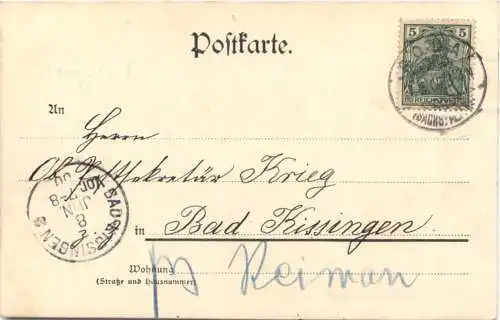 Postkarte.
5 5
REICHSPOST
An
Herrn
Ob. Postsekretär Krieg
in Bad Kissingen
BAD KISSINGEN
8 JUN
Vor. 7-8
Wohnung
(Straße und Hausnummer)
Reiman